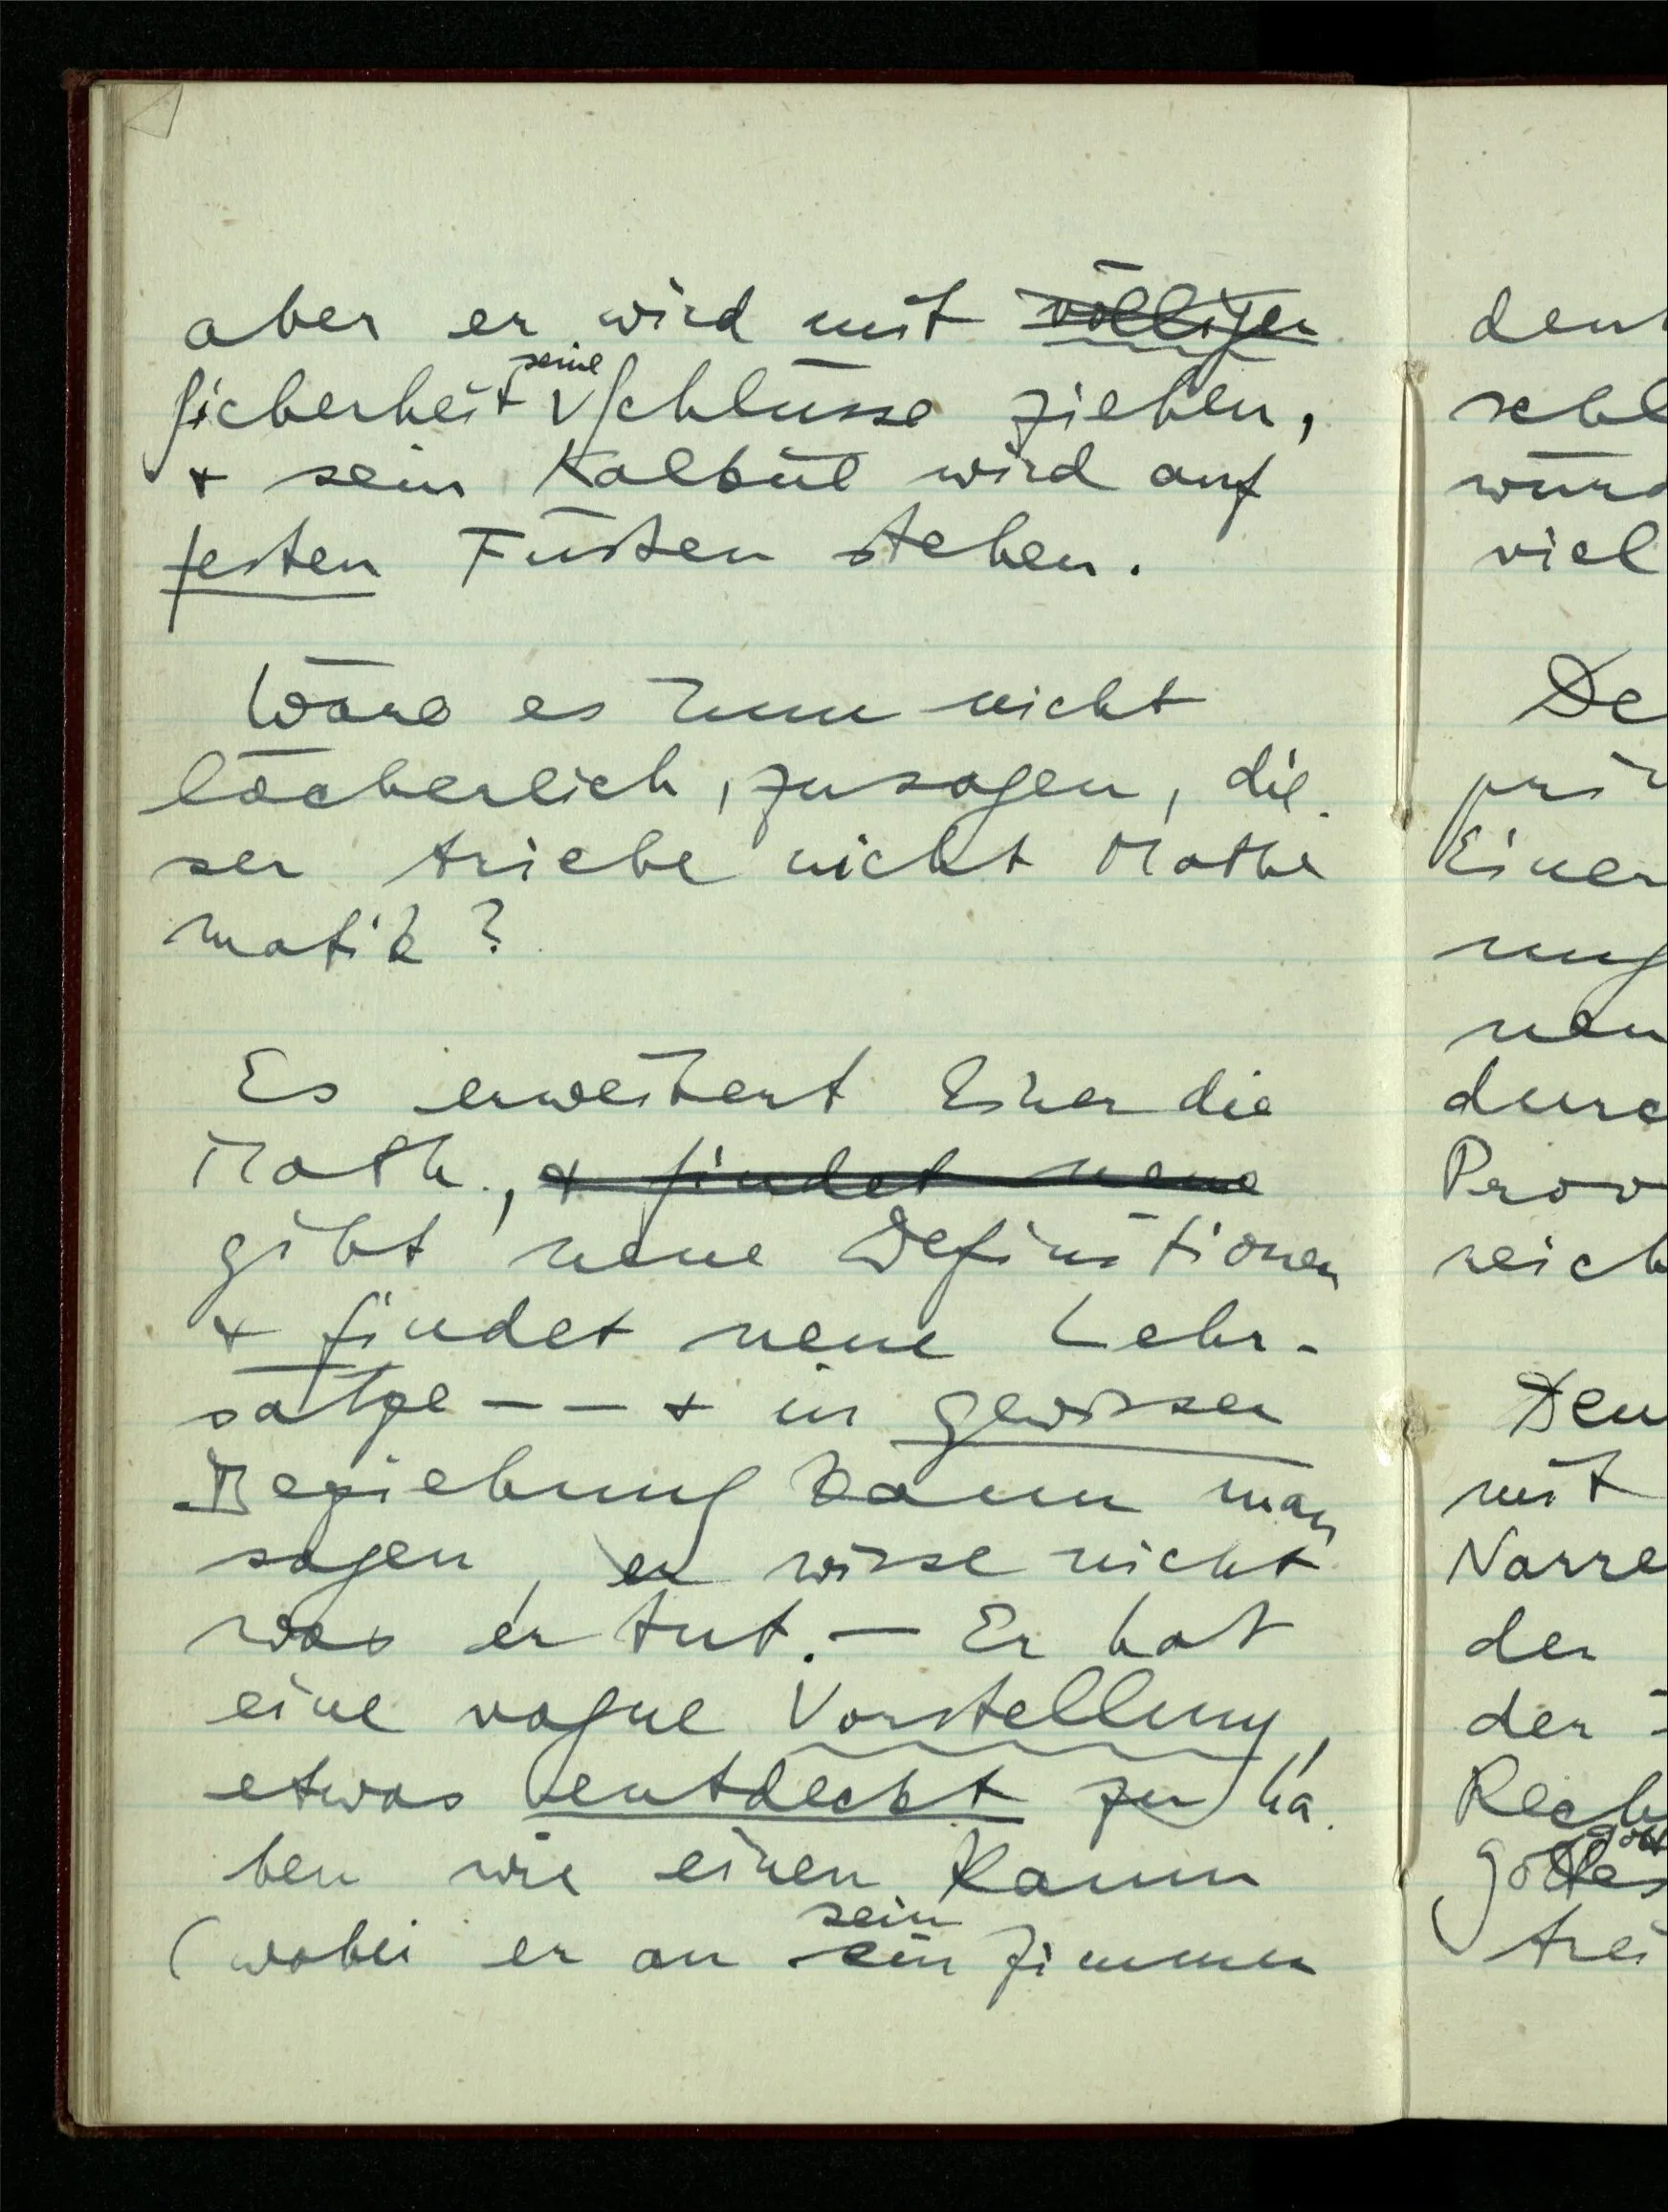 aber er wird mit völliger
Sicherheit seine Schlüsse ziehen,
+ sein Kalkül wird auf
festen Füssen stehen.
Wäre es nun nicht
lächerlich, zu sagen, die-
ser triebe nicht Mathe
matik?
Es erweitert Einer die
Math., + findet neue
gibt neue Definitionen
+ findet neue Lehr-
sätze – – + in gewisser
Beziehung kann man
sagen, er wisse nicht
was er tut. – Er hat
eine vague Vorstellung,
etwas entdeckt zu ha-
ben wie einen Raum
sein
(wobei er an ein Zimmer
den
De
Einer
durc
der
der